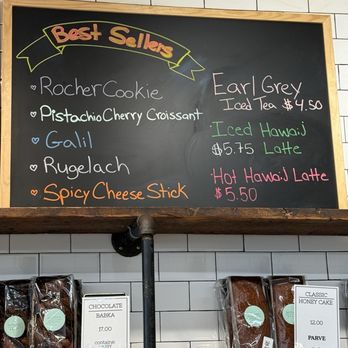 Best Sellers
Rocher Cookie
Pistachio Cherry Croissant
Galil
Rugelach
Spicy Cheese Stick
Earl Grey
Iced Tea $4.50
Iced Hawaij
$5.75 Latte
Hot Hawaij Latte
$5.50
CHOCOLATE
BABKA
17,00
contains
CLASSIC
HONEY CAKE
12,00
PARVE